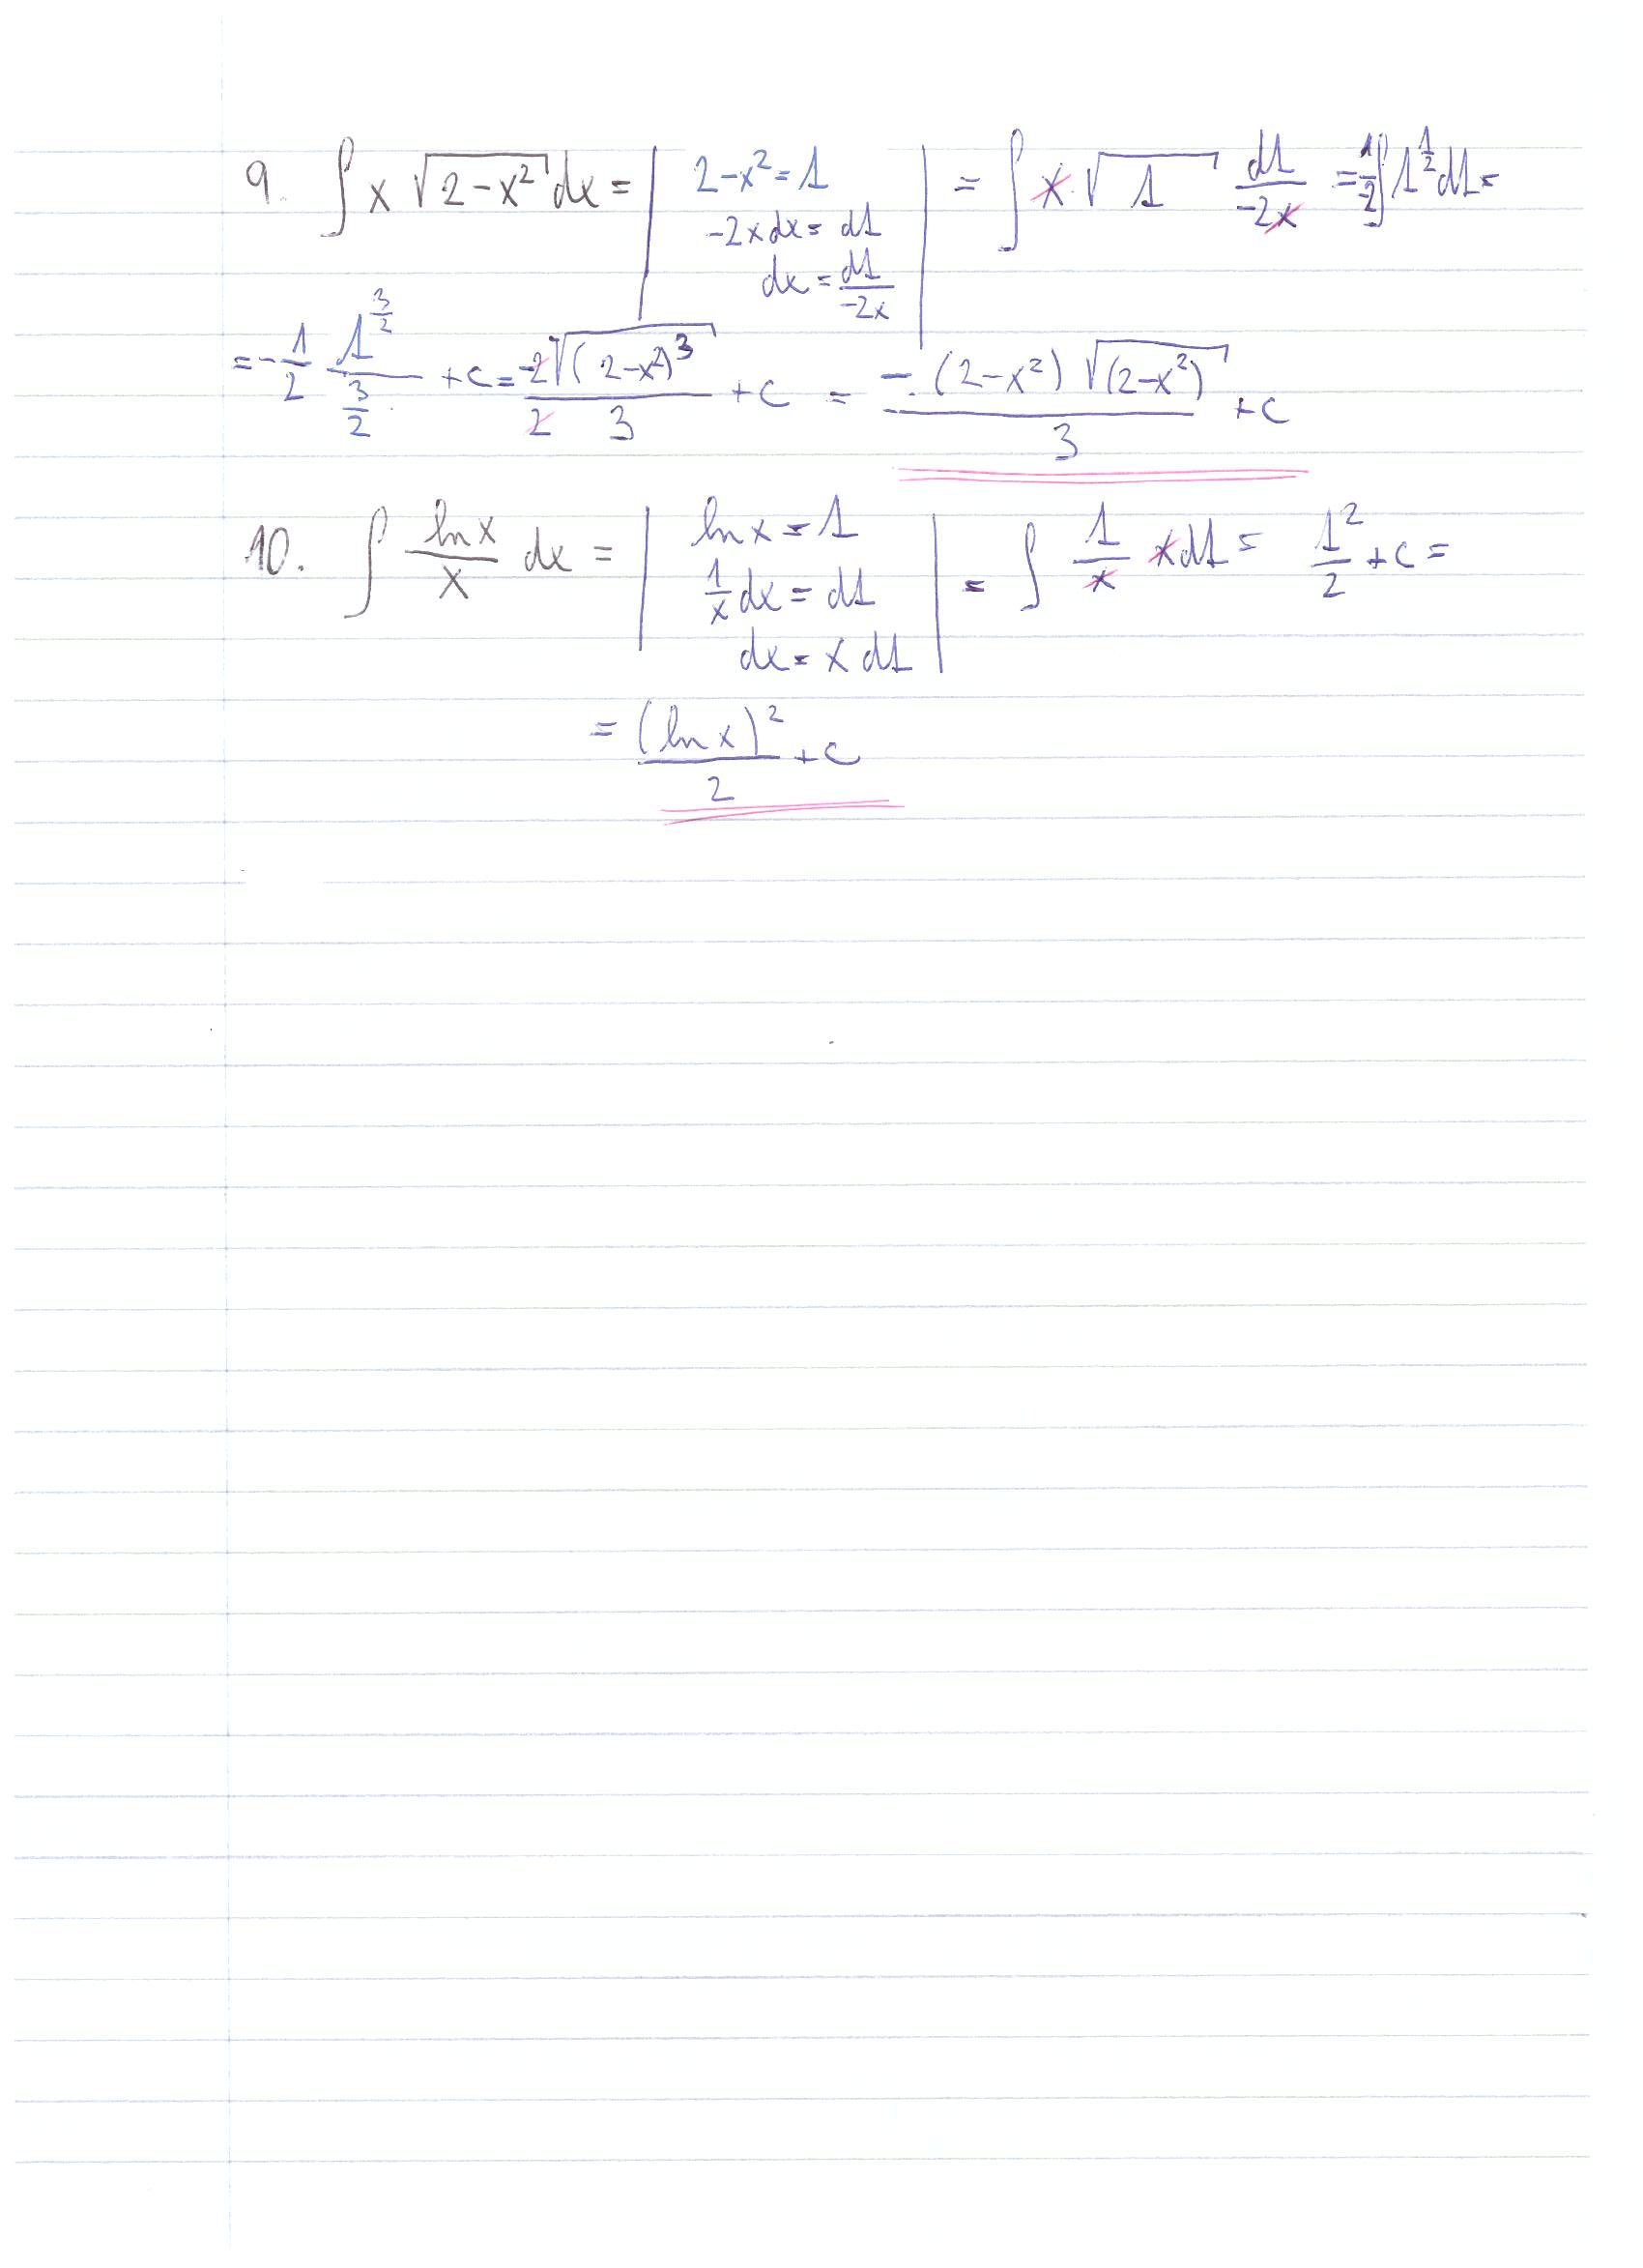 9. ∫ x √(2-x²) dx = | 2-x² = t ; -2x dx = dt ; dx = dt/(-2x) | = ∫ x · √t dt/(-2x) = 1/2 ∫ t^(1/2) dt =
= -1/2 t^(3/2)/(3/2) + c = -2√((2-x²)³)/(2 3) + c = -(2-x²)√((2-x²))/3 + c
10. ∫ ln x/x dx = | ln x = t ; 1/x dx = dt ; dx = x dt | = ∫ t/x x dt = t²/2 + c =
= (ln x)²/2 + c